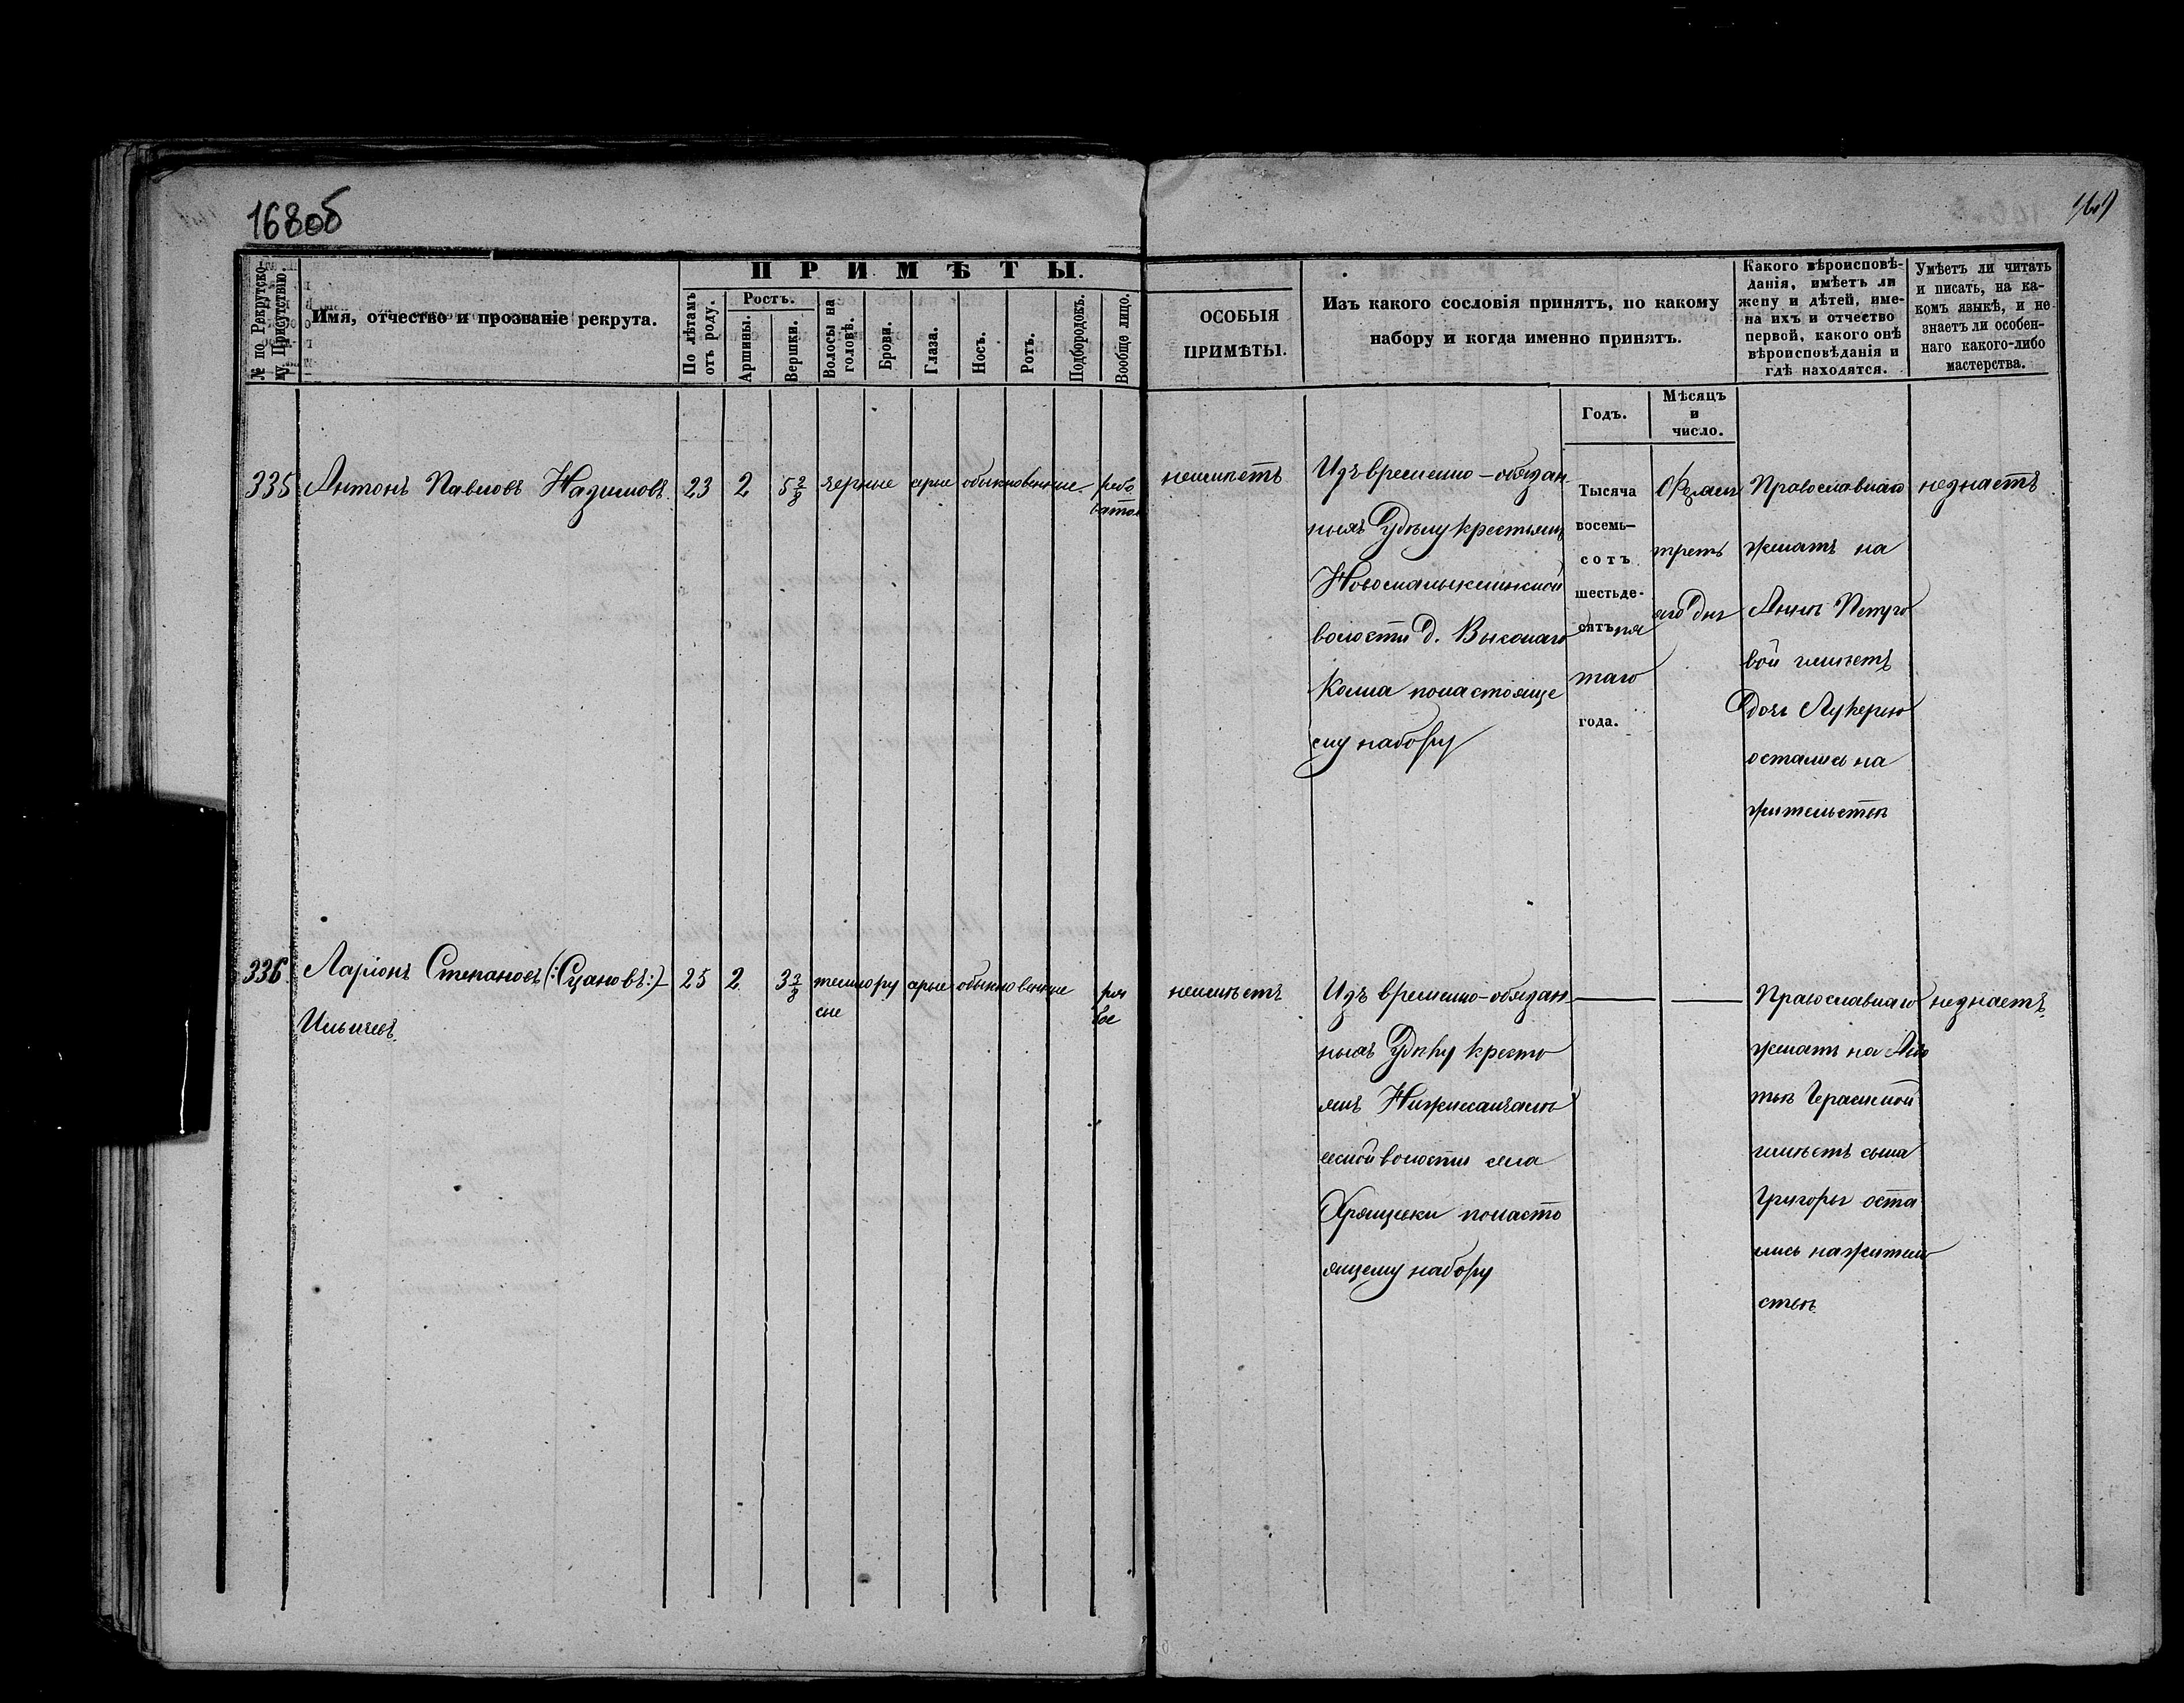 168об
169
№ по Рекрутско-
му Присутствію.
Имя, отчество и прозваніе рекрута.
ПРИМѢТЫ.
По лѣтамъ
отъ роду.
Ростъ.
Аршины.
Вершки.
Волосы на
головѣ.
Брови.
Глаза.
Носъ.
Ротъ.
Подбородокъ.
Вообще лицо.
ОСОБЫЯ
ПРИМѢТЫ.
Изъ какого сословія принятъ, по какому
набору и когда именно принятъ.
Годъ.
Мѣсяцъ
и
число.
Какого вѣроисповѣ-
данія, имѣетъ ли
жену и дѣтей, име-
на ихъ и отчество
первой, какого онѣ
вѣроисповѣданія и
гдѣ находятся.
Умѣетъ ли читать
и писать, на ка-
комъ языкѣ, и не
знаетъ ли особен-
наго какого-либо
мастерства.
335 Антонъ Павловъ Назимовъ. 23 2 5 2/8 черные серые обыкновенные рябо
ватое
неимѣетъ
Изъ временно-обязан
ныхъ Удѣлу крестьянъ
Новомалыклинской
волости д. Высокаго
Колка понастояще
му набору
Тысяча
восемь-
сотъ
шестьде-
сятъ пя
таго
года.
треть
яго дня
Православнаго
женатъ на
Аннѣ Петро
вой имѣетъ
дочь Лукерью
остались на
жительствѣ
незнаетъ
336 Ларіонъ Степановъ (:Суановъ:) 25 2 3 2/8 темнору серые обыкновенные ря
сые
бое
Ильичевъ.
неимѣетъ
Изъ временно-обязан
ныхъ Удѣлу кресть
янъ
волости села
Хрящевки понасто
ящему набору
Православнаго
женатъ на
имѣетъ сына
Григорья оста
лись нажитель
ствѣ
незнаетъ.